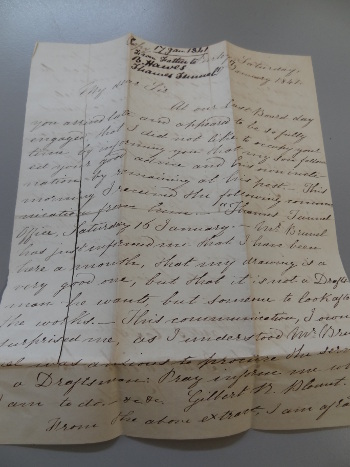 17 Jan. 1841
B. Hawes
Thames Tunnel
Saturday,
My dear Sir
At our last Board day
you arrived late and appeared to be so fully
engaged that I did not like to occupy your
time by informing you that my son follow
ed your good advice and
nation by remaining at his post - This
morning I received the following commu
nication from him - "Thames Tunnel
Office, Saturday 16 January - Mr. Brunel
has just informed me that I have been
here a month, that my drawing is a
very good one, but that it is not a Drafts
man he wants, but someone to look after
the works. - This communication, I own
surprised me, as I understood Mr. Brun
el was anxious to procure the
a Draftsman. Pray inform me
I am to do - &c &c. Gilbert B. Blount.
From the above extract, I am